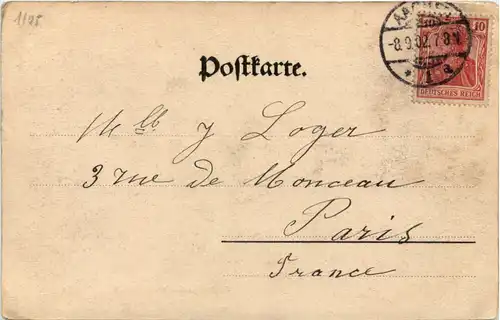 1/25
AACHEN
10
-8.9.02.7-8V.
* 1 a.
DEUTSCHES REICH
Postkarte.
Mlle J Loger
3 rue de Monceau
Paris
France